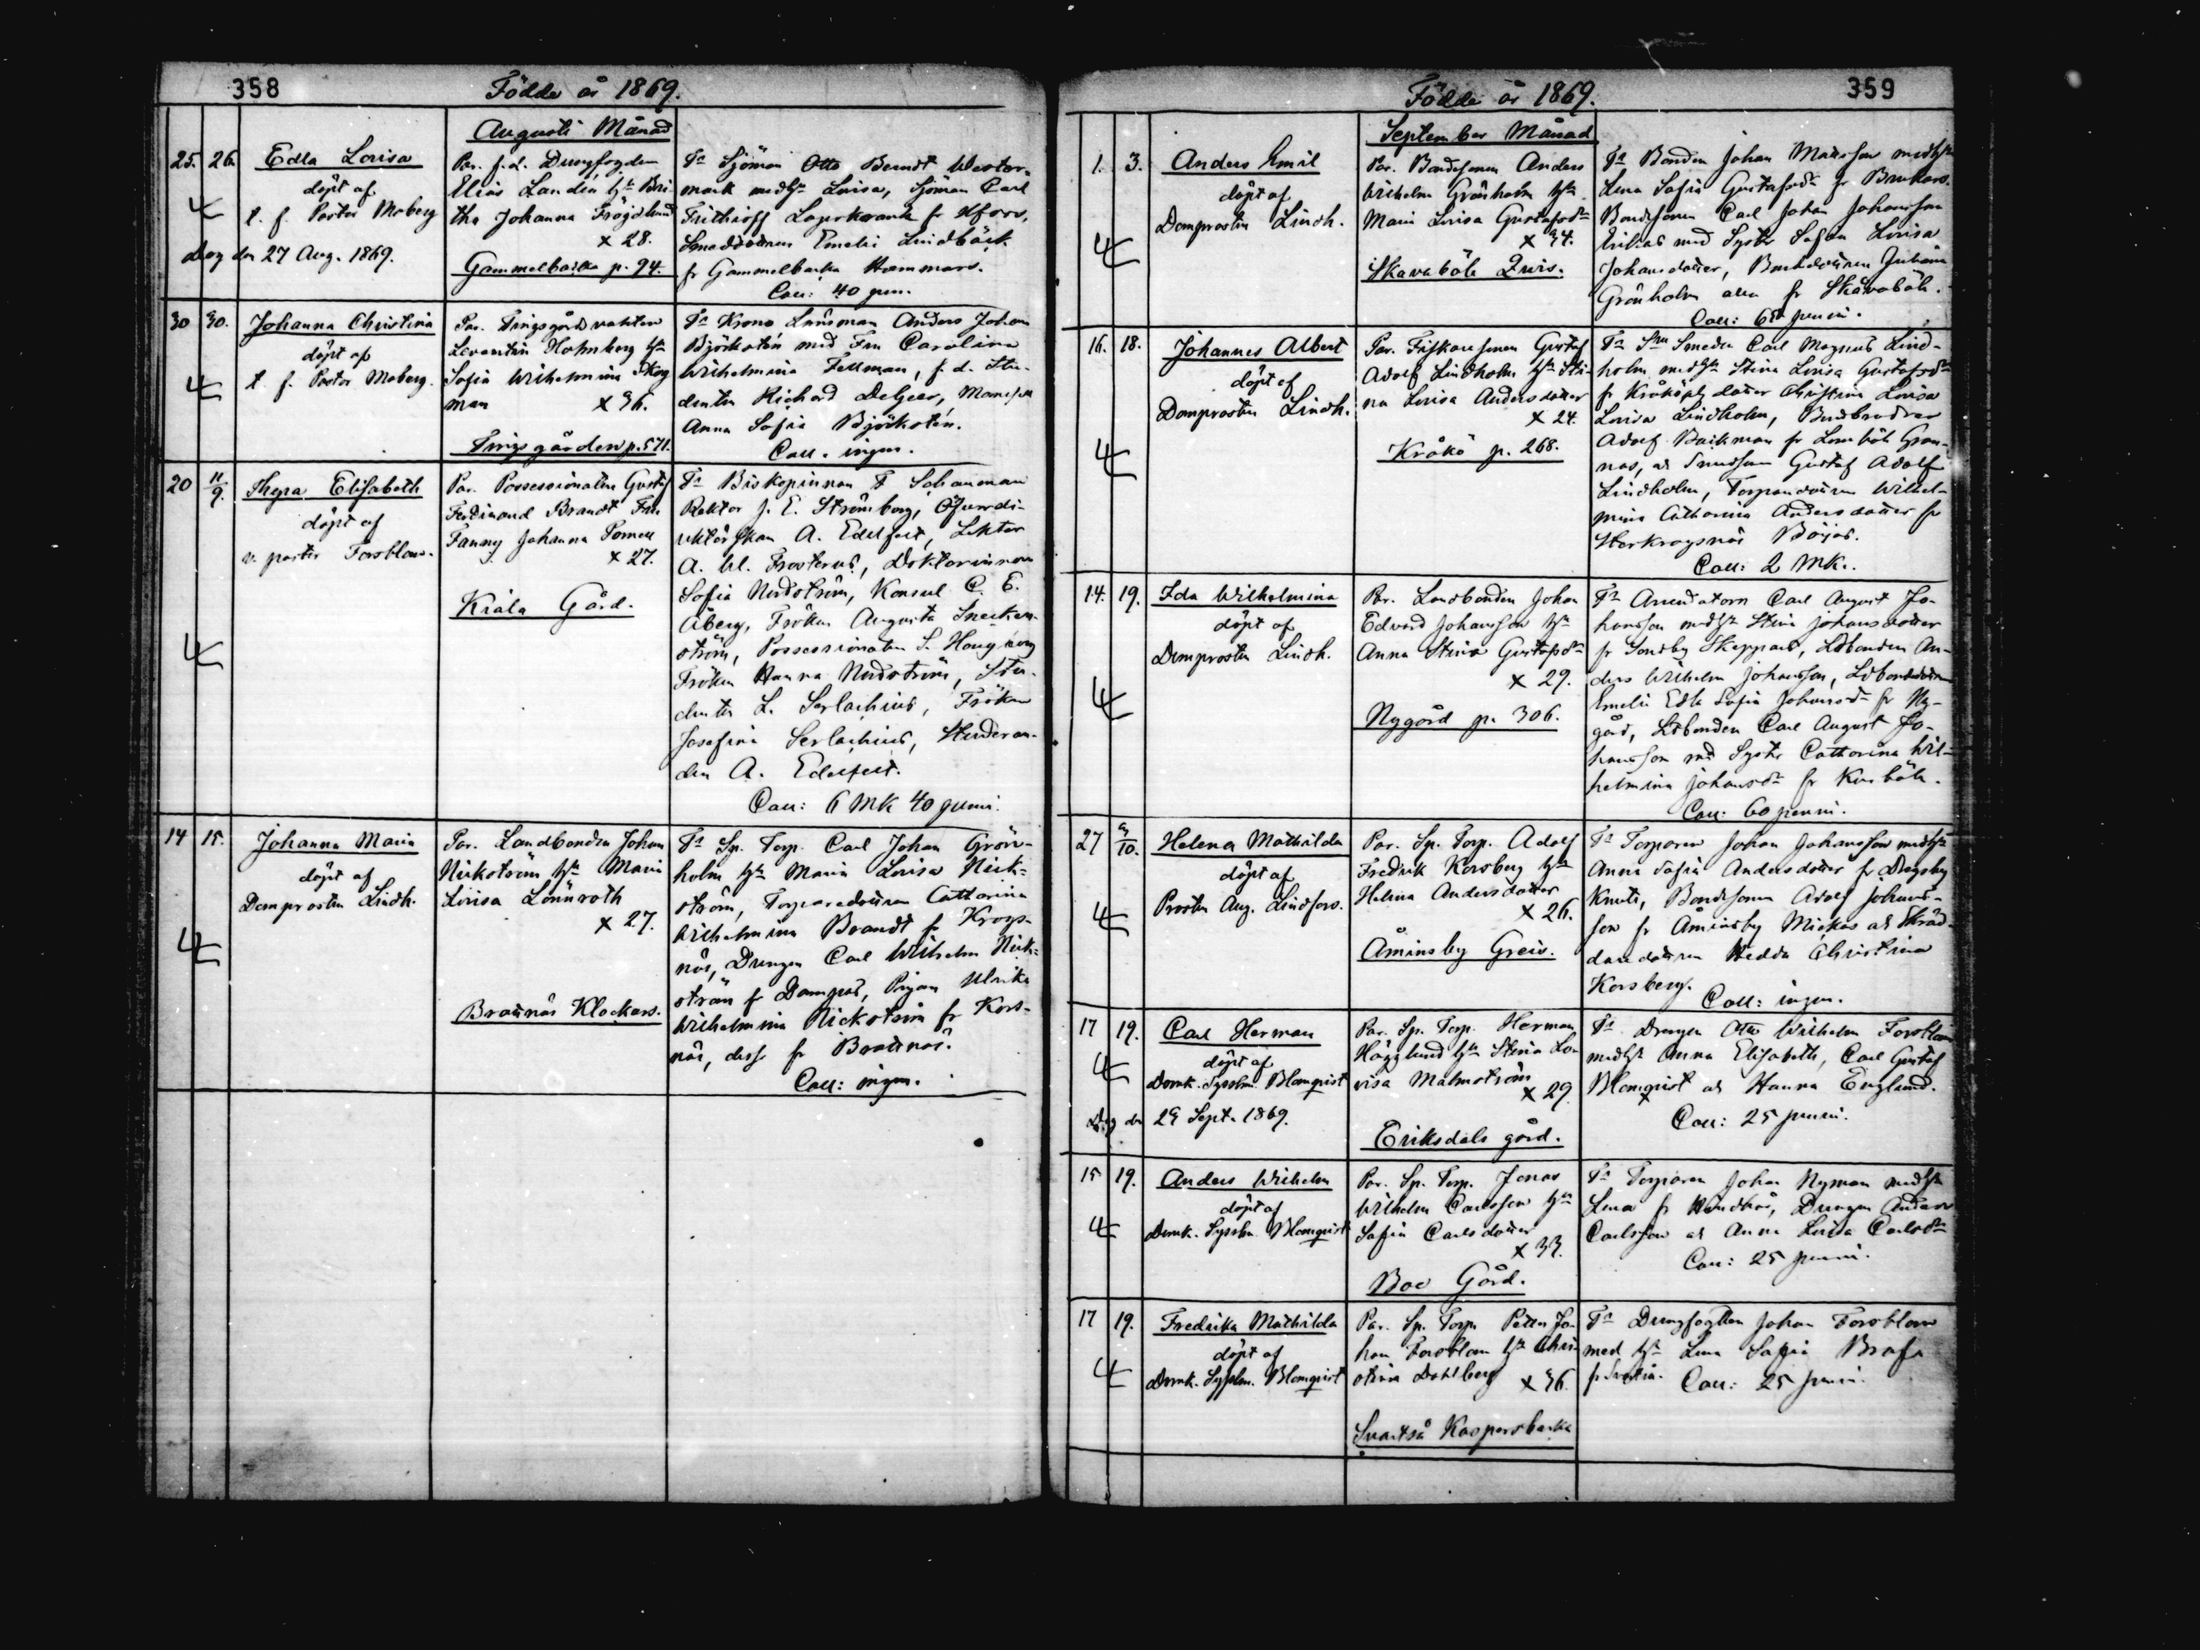 358
Födde år 1869.
Augusti Månad
25. 26. Edla Lovisa
döpt af
t. f. Pastor Moberg
Dog den 27 Aug. 1869.
Par. f.d. Drengfogden
Elias Landén h:u Bri-
tha Johanna Fröjdlund
x 28.
Gammelbacka p. 94.
F:a Sjöman Otto Berndt Wester-
mark med h:u Lovisa, Sjöman Carl
Frithioff Lagerkrantz fr Hfors,
Smeddottren Emelie Lindbäck
fr Gammelbacka Hammars.
Coll: 40 penn.
30 30. Johanna Christina
döpt af
t. f. Pastor Moberg.
Par. Tingsgårdsvakten
Leventin Holmberg h:u
Sofia Wilhelmina Skog
man x 36.
Tingsgården p. 571.
F:a Krono Länsman Anders Johan
Björkstén med Fru Carolina
Wilhelmina Fellman, f. d. Stu-
denten Richard DeGeer, Mamsell
Anna Sofia Björkstén.
Coll. ingen.
20 11/9. Thyra Elisabeth
döpt af
v. pastor Forsblom.
Par. Possessionaten Gustaf
Ferdinand Brandt Fru
Fanny Johanna
x 27.
Kiala Gård.
F:a Biskopinnan F Schauman
Rektor J. E. Strömborg, Öfverdi-
rektörskan A. Edelfelt, Lektor
A. W. Frosterus, Doktorinnan
Sofia Nordström, Konsul C. E.
Åberg, Fröken Augusta Snecken-
ström, Possessionaten S.
Fröken Hanna Nordström, Stu-
denten L. Serlachius, Fröken
Josefina Serlachius, Studeran-
den A. Edelfelt.
Coll: 6 Mk 40 penni.
14 15. Johanna Maria
döpt af
Domprosten Lindh.
Par. Landbonden Johan
Nickström h:u Maria
Lovisa Lönnroth
x 27.
Bratnäs Klockars.
F:a Sp. Torp. Carl Johan Grön-
holm h:u Maria Lovisa Nick-
ström, Torparedottren Catharina
Wilhelmina Brandt fr Krogs-
näs, Drengen Carl Wilhelm Nick-
ström fr Dampas, Pigan Ulrika
Wilhelmina Nickström fr Kors-
näs, desse fr Bratnäs.
Coll: ingen.
359
Födde år 1869.
September Månad
1. 3. Anders Emil
döpt af
Domprosten Lindh.
Par. Bondesonen Anders
Wilhelm Grönholm h:u
Maria Lovisa Gustafsd:r
x 34.
Skavaböle Qvis.
F:a Bonden Johan Matsson med h:u
Lena Sofia Gustafsd:r fr
Bondesonen Carl Johan Johansson
Erikas med Syster Sofia Lovisa
Johansdotter, Bondedottren Juliana
Grönholm alla fr Skavaböle.
Coll: 60 penni.
16. 18. Johannes Albert
döpt af
Domprosten Lindh.
Par. Fiskaresonen Gustaf
Adolf Lindholm h:u Sti-
na Lovisa Andersdotter
x 24.
Kråkö p. 268.
F:a Smeden Carl Magnus Lind-
holm med h:u Stina Lovisa Gustafsd:r
fr Kråkö, dotter Christina Lovisa
Lovisa Lindholm,
Adolf Backman fr Gran-
nas, och Gustaf Adolf
Lindholm, Torparedottren Wilhel-
mina Catharina Andersdotter fr
Börjas.
Coll: 2 Mk.
14. 19. Ida Wilhelmina
döpt af
Domprosten Lindh.
Par. Landbonden Johan
Edvard Johansson h:u
Anna Stina Gustafsd:r
x 29.
Nygård p. 306.
F:a Arrendatorn Carl August Jo-
hansson med h:u Stina Johansdotter
fr Sondby Skeppars, Ldbonden An-
ders Wilhelm Johansson,
Emelie Edla Sofia Johansd:r fr Ny-
gård, Ldbonden Carl August Jo-
hansson med Syster Catharina Wil-
helmina Johansd:r fr
Coll: 60 penni.
27 9/10. Helena Mathilda
döpt af
Prosten Aug. Lindfors.
Par. Sp. Torp. Adolf
Fredrik Korsberg h:u
Helena Andersdotter
x 26.
Åminsby Greis.
F:a Torparen Johan Johansson med h:u
Anna Sofia Andersdotter fr Drägsby
Knuts, Bondesonen Adolf Johans-
son fr Åminsby Mickos och Skräd-
daredottren Hedda Christina
Korsberg.
Coll: ingen.
17 19. Carl Herman
döpt af
Domk. Sysslm. Blomqvist
Dog den 29 Sept. 1869.
Par. Sp. Torp. Herman
Hägglund h:u Stina Lo-
visa Malmström
x 29
Eriksdals gård.
F:a Drengen Otto Wilhelm Forsblom
med h:u Anna Elisabeth, Carl Gustaf
Blomqvist och Hanna Englund.
Coll: 25 penni.
15 19. Anders Wilhelm
döpt af
Domk. Sysslm. Blomqvist
Par. Sp. Torp. Jonas
Wilhelm Carlsson h:u
Sofia Carlsdotter
x 33.
Boe Gård.
F:a Torparen Johan Nyman med h:u
Lena fr Drengen Anders
Carlsson och Anna Lovisa Carlsd:r
Coll: 25 penni.
17 19. Fredrika Mathilda
döpt af
Domk. Sysslm. Blomqvist
Par. Sp. Torp. Petter Jo-
han Forsblom h:u Chri-
stina Dahlberg x 36.
Svartså Kaspersbacka
F:a Drengfogden Johan Forsblom
med h:u Lena Sofia
Coll: 25 penni.